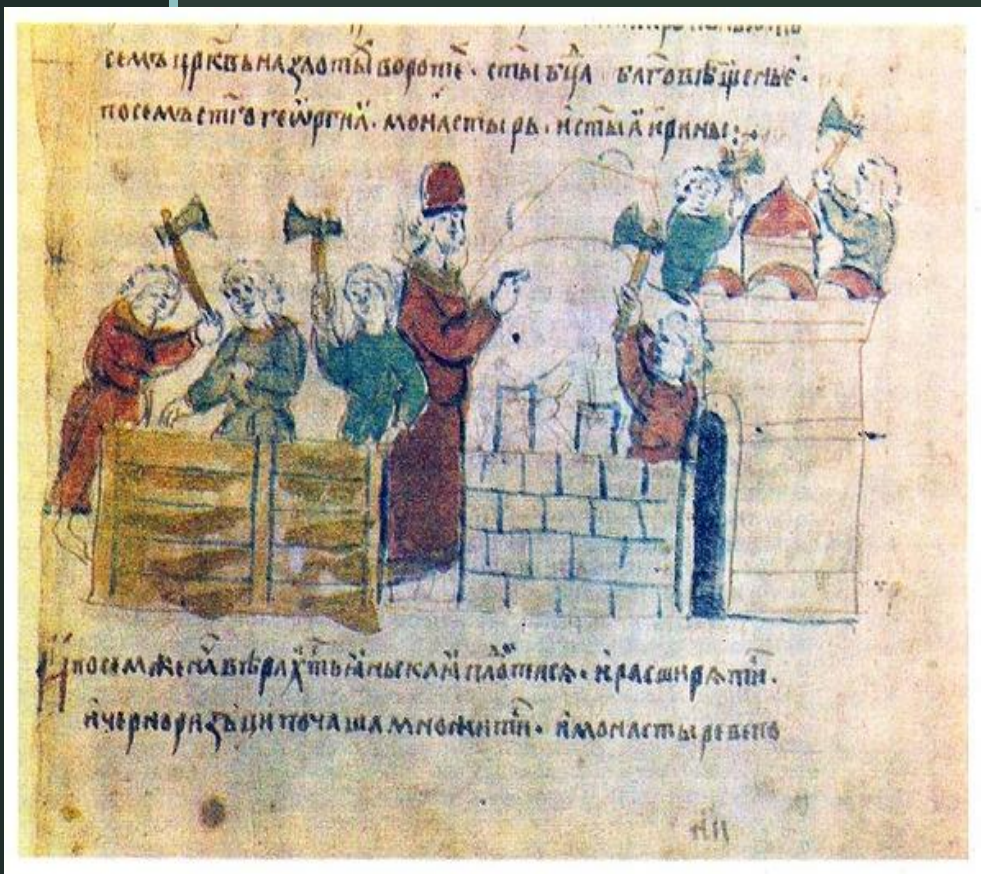 семъ црк҃вь на злоты воротѣ · ст҃ы бц҃а бл҃говѣщенье ·
посемъ ст҃го геѡргиа · монастырь · и ст҃ыа ирины :·
вѣра хт҃ьаньскаа плодитисѧ · и расширѧти ·
и черноризьци почаша множити · и монастыреве по